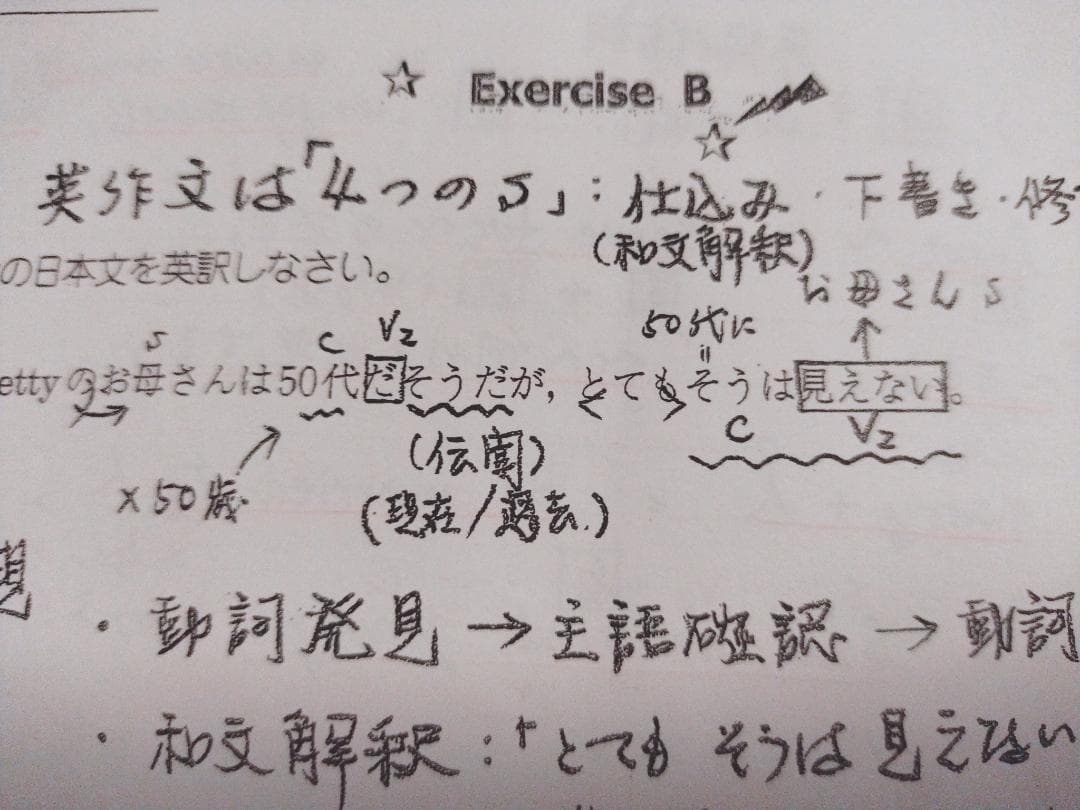 ☆ Exercise B
☆
英作文は「4つのS」：仕込み・下書き・修
(和文解釈)
の日本文を英訳しなさい。
お母さん S
S C V2 50代に
ettyのお母さんは50代だそうだが，とてもそうは見えない。
C V2
(伝聞)
×50歳
(現在/過去)
題
・動詞発見→主語確認→動詞
・和文解釈：「とてもそうは見えない